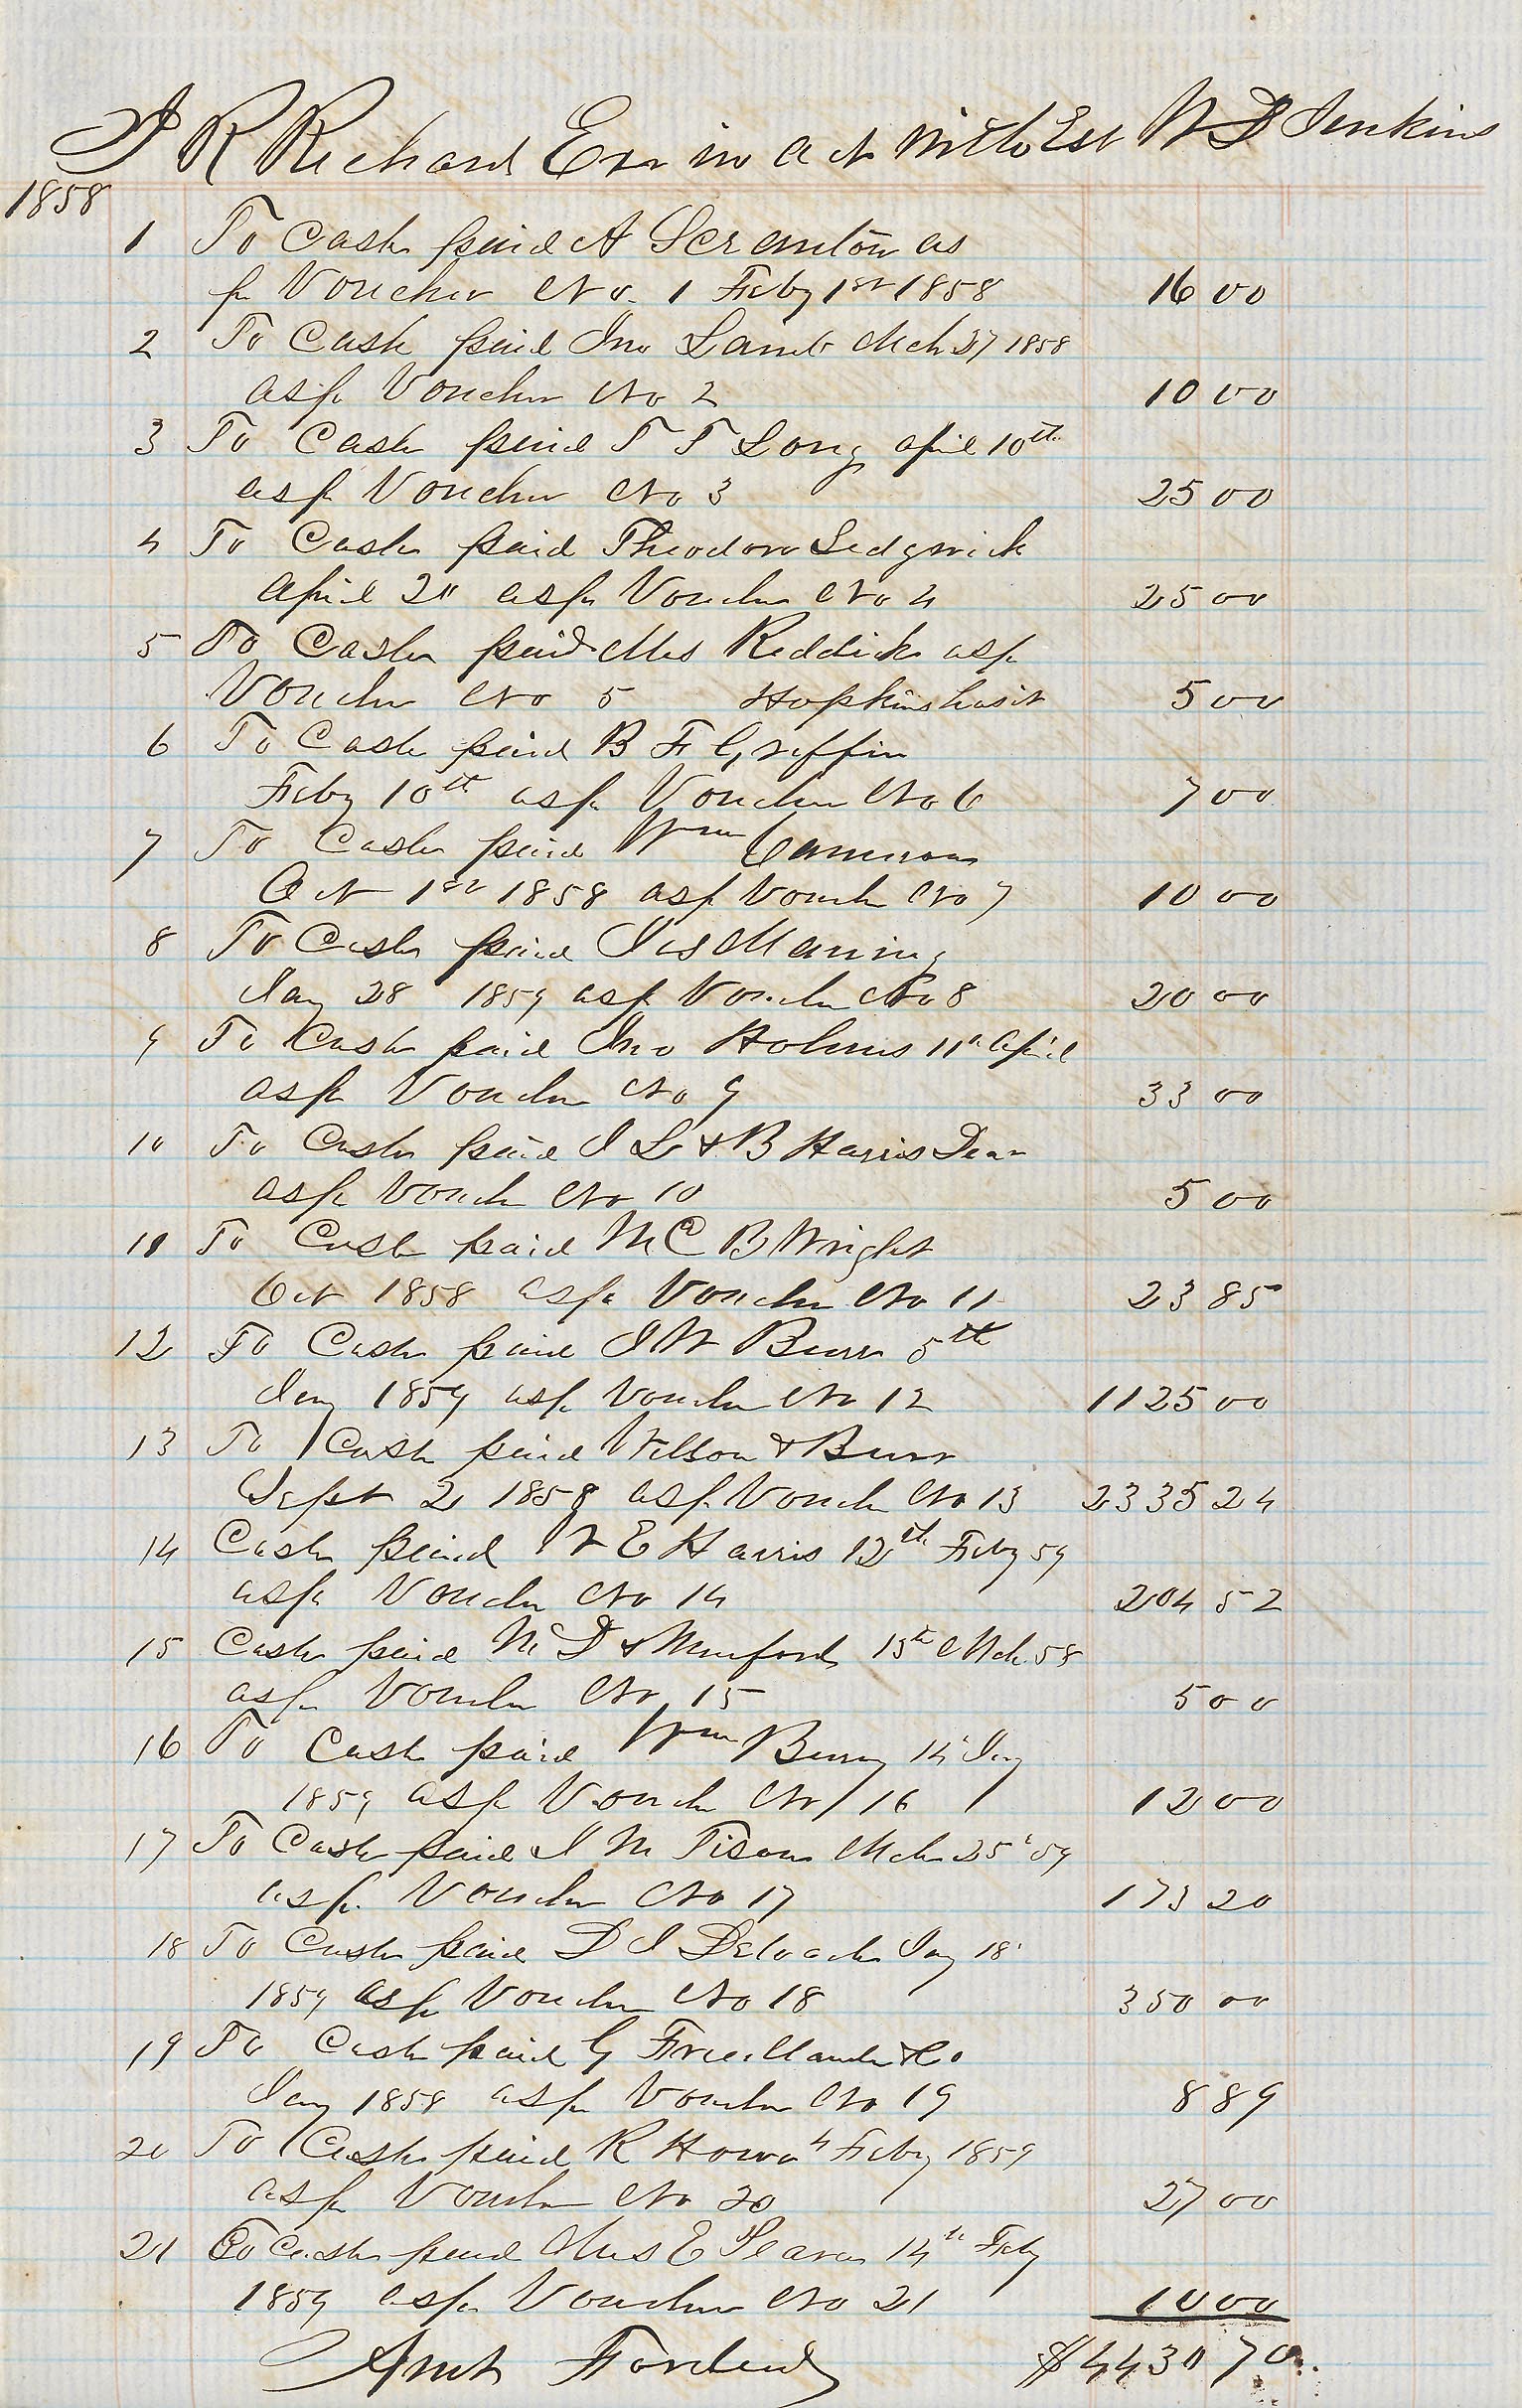 J R Richard Exr in act with Est W D Jenkins
1858
1 To Cash paid A Scranton as
pr Voucher No. 1 Feby 1st 1858 16 00
2 To Cash paid Jno Lamb Mch 27 1858
as pr Voucher No 2 10 00
3 To Cash paid T T Long april 10th
as pr Voucher No 3 25 00
4 To Cash paid Theodore Sedgwick
april 20 as pr Voucher No 4 25 00
5 To Cash paid Mrs Reddick as pr
Voucher No 5 Hopkins 5 00
6 To Cash paid B F Griffin
Feby 10th as pr Voucher No 6 7 00
7 To Cash paid Wm Cameron
Oct 1st 1858 as pr Vouch No 7 10 00
8 To Cash paid Jas Maning
Jany 28 1859 as pr Vouch No 8 20 00
9 To Cash paid Jno Holmes 11th April
as pr Vouch No 9 33 00
10 To Cash paid J L & B Harris
as pr Vouch No 10 5 00
11 To Cash paid M C B Wright
Oct 1858 as pr Vouch No 11 23 85
12 To Cash paid J W Burr 5th
Jany 1859 as pr Vouch No 12 1125 00
13 To Cash paid Wilson & Burr
Sept 2 1858 as pr Vouch No 13 2335 24
14 Cash paid E Harris 12th Feby 59
as pr Vouch No 14 204 52
15 Cash paid Mc D & Mumford 15th Mch 58
as pr Vouch No 15 5 00
16 To Cash paid Wm Berry 14 Jany
1859 as pr Vouch No 16 12 00
17 To Cash paid J M Tison Mch 25 59
as pr Vouch No 17 173 20
18 To Cash paid D J Deloach Jany 18
1859 as pr Vouch No 18 350 00
19 To Cash paid G Friedlander & Co
Jany 1858 as pr Vouch No 19 8 89
20 To Cash paid R Howe 4 Feby 1859
as pr Vouch No 20 27 00
21 To Cash paid Mrs E 14th Feby
1859 as pr Voucher No 21 10 00
Amt Forward $4430 70